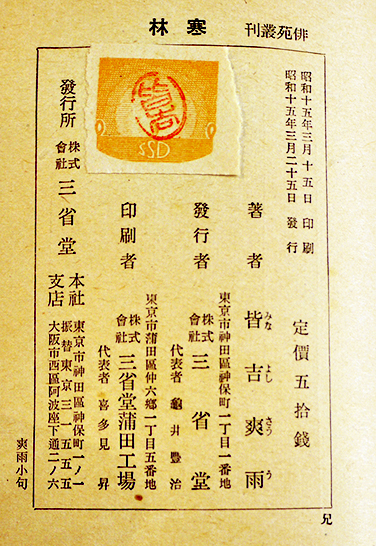 俳苑叢刊　寒林
昭和十五年三月十五日 印刷
昭和十五年三月二十五日 發行
定價五拾錢
著者 皆吉爽雨
みな よし さう う
東京市神田區神保町一丁目一番地
發行者 株式會社 三省堂
代表者 龜井豐治
東京市蒲田區仲六郷一丁目五番地
印刷者 株式會社 三省堂蒲田工場
代表者 喜多見昇
發行所 株式會社 三省堂
本社 東京市神田區神保町一ノ一
振替東京三一五五五
支店 大阪市西區阿波座下通二ノ六
爽雨小句
SSD